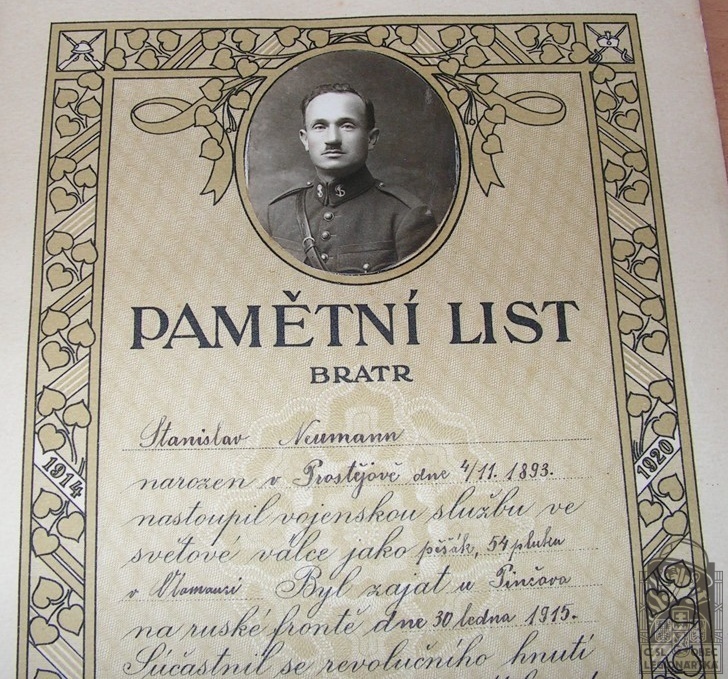 PAMĚTNÍ LIST
BRATR
Stanislav Neumann
narozen v Prostějově dne 4/11. 1893.
nastoupil vojenskou službu ve
světové válce jako pěšák, 54 pluku
v Olomouci Byl zajat u Pinčova
na ruské frontě dne 30 ledna 1915.
Súčastnil se revolučního hnutí
1914
1920
ČSL. OBEC
LEGIONÁŘSKÁ